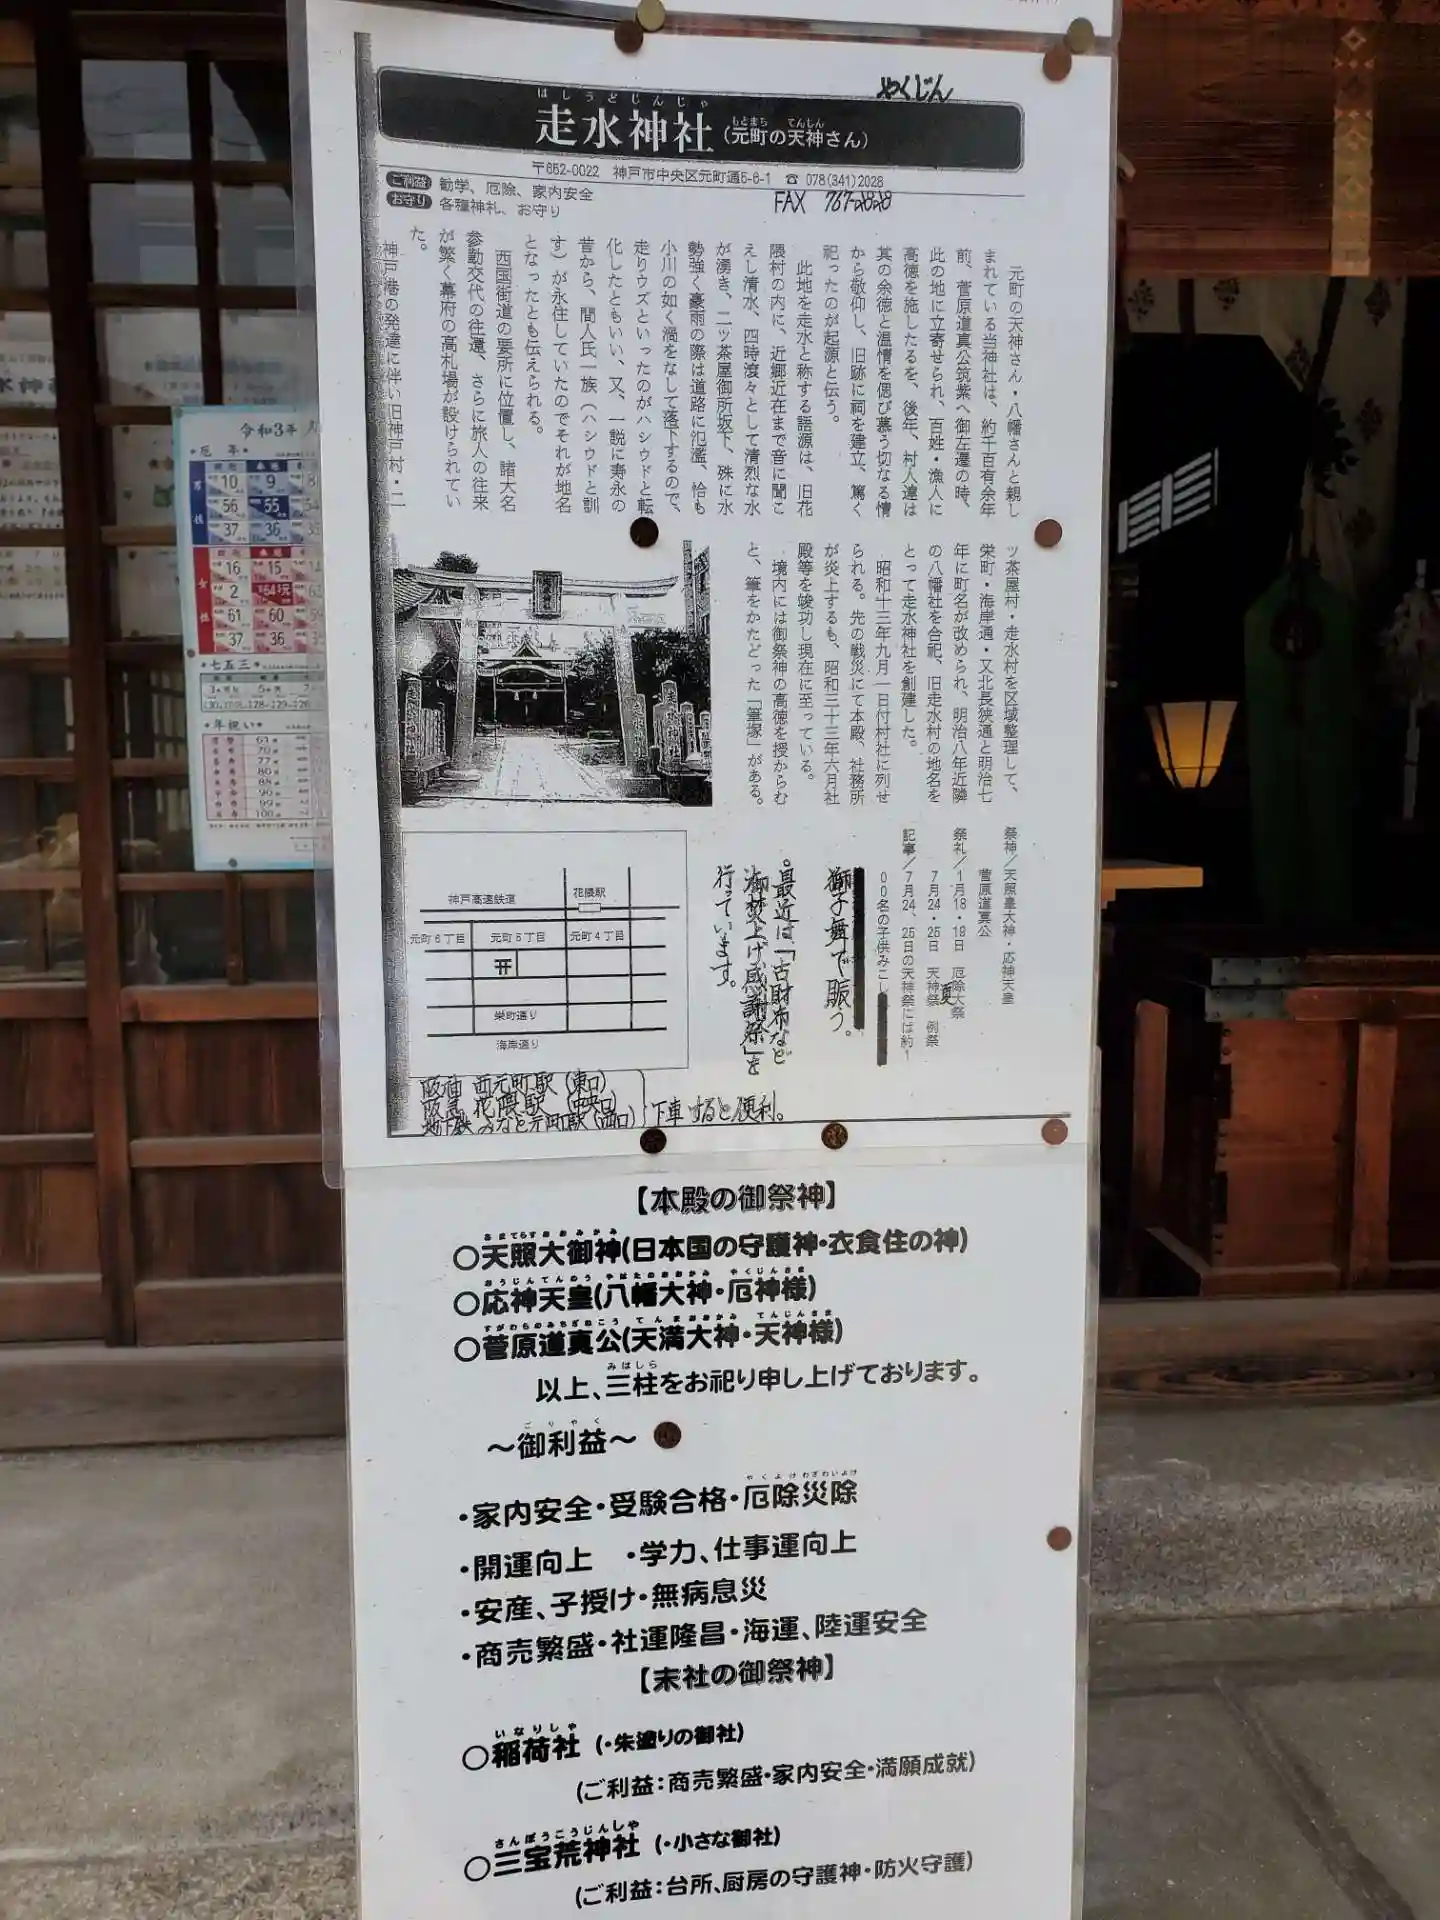 やくじん
はしうどじんじゃ
走水神社(元町の天神さん)
もとまち てんしん
〒652-0022 神戸市中央区元町通5-6-1 ☎ 078(341)2028
FAX 767-2828
ご利益 勧学、厄除、家内安全
お守り 各種神札、お守り
元町の天神さん・八幡さんと親し
まれている当神社は、約千百有余年
前、菅原道真公筑紫へ御左遷の時、
此の地に立寄せられ、百姓・漁人に
高徳を施したるを、後年、村人達は
其の余徳と温情を偲び慕う切なる情
から敬仰し、旧跡に祠を建立、篤く
祀ったのが起源と伝う。
此地を走水と称する語源は、旧花
隈村の内に、近郷近在まで音に聞こ
えし清水、四時滾々として清烈な水
が湧き、二ッ茶屋御所坂下、殊に水
勢強く豪雨の際は道路に氾濫、恰も
小川の如く渦をなして落下するので、
走りウズといったのがハシウドと転
化したともいい、又、一説に寿永の
昔から、間人氏一族(ハシウドと訓
す)が永住していたのでそれが地名
となったとも伝えられる。
西国街道の要所に位置し、諸大名
参勤交代の往還、さらに旅人の往来
が繁く幕府の高札場が設けられてい
た。
神戸港の発達に伴い旧神戸村・二
ッ茶屋村・走水村を区域整理して、
栄町・海岸通・又北長狭通と明治七
年に町名が改められ、明治八年近隣
の八幡社を合祀、旧走水村の地名を
とって走水神社を創建した。
昭和十三年九月一日付村社に列せ
られる。先の戦災にて本殿、社務所
が炎上するも、昭和三十三年六月社
殿等を竣功し現在に至っている。
境内には御祭神の高徳を授からむ
と、筆をかたどった「筆塚」がある。
祭神/天照皇大神・応神天皇
菅原道真公
祭礼/1月18・19日 厄除大祭
7月24・25日 天神祭 夏例祭
記事/7月24、25日の天神祭には約1
00名の子供みこし
獅子舞で賑う。
。最近は、「古財布など
御焚上げ感謝祭」を
行っています。
神戸高速鉄道
花隈駅
元町6丁目 元町5丁目 元町4丁目
栄町通り
海岸通り
阪神 西元町駅(東口)
阪急 花隈駅 (中央口)
地下鉄 みなと元町駅(西口)
下車すると便利。
【本殿の御祭神】
あまてらすおおみかみ
○天照大御神(日本国の守護神・衣食住の神)
おうじんてんのう やはたのおおかみ やくじんさま
○応神天皇(八幡大神・厄神様)
すがわらのみちざねこう てんまおおかみ てんじんさま
○菅原道真公(天満大神・天神様)
みはしら
以上、三柱をお祀り申し上げております。
ごりやく
～御利益～
やくよけわざわいよけ
・家内安全・受験合格・厄除災除
・開運向上 ・学力、仕事運向上
・安産、子授け・無病息災
・商売繁盛・社運隆昌・海運、陸運安全
【末社の御祭神】
いなりしゃ
○稲荷社 (・朱塗りの御社)
(ご利益:商売繁盛・家内安全・満願成就)
さんぽうこうじんしゃ
○三宝荒神社 (・小さな御社)
(ご利益:台所、厨房の守護神・防火守護)
令和3年
厄年
男性
10 9
56 55
37 36
女性
16 15
2
61 60
37 36
七五三
年祝い